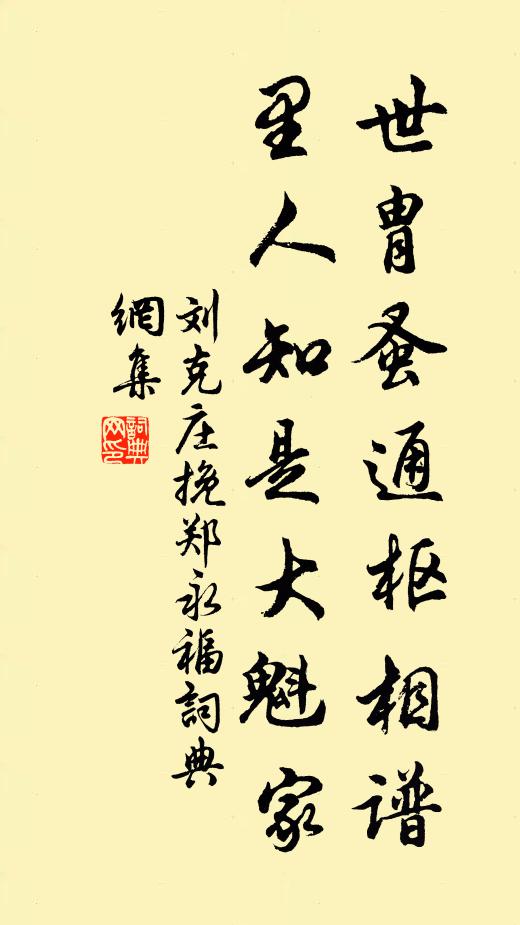 世胄蚤通枢相谱
里人知是大魁家
刘克庄挽郑永福詞典
網集
詞典
网印